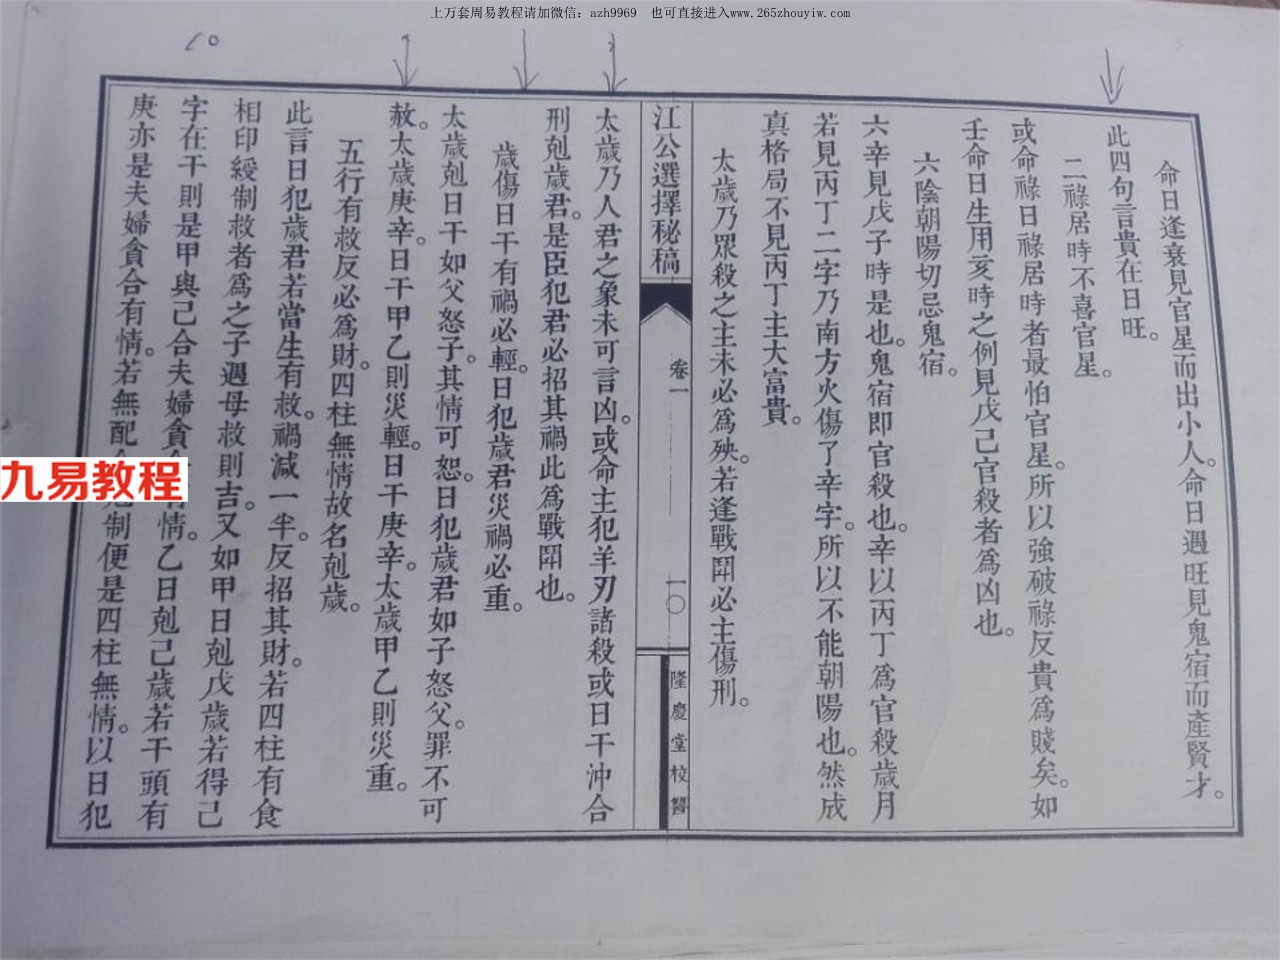 上万套周易教程请加微信：azh9969 也可直接进入www.265zhouyiw.com
10
命日逢衰見官星而出小人。命日遇旺見鬼宿而產賢才。
此四句言貴在日旺。
二祿居時不喜官星。
或命祿日祿居時者最怕官星。所以強破祿反貴為賤矣。如
壬命日生用亥時之例見戊己官殺者為凶也。
六陰朝陽切忌鬼宿。
六辛見戊子時是也。鬼宿即官殺也。辛以丙丁為官殺歲月
若見丙丁二字乃南方火傷了辛字。所以不能朝陽也。然成
真格局不見丙丁主大富貴。
太歲乃眾殺之主未必為殃。若逢戰鬪必主傷刑。
江公選擇秘稿
卷一
一〇
隆慶堂校
太歲乃人君之象未可言凶。或命主犯羊刃諸殺或日干沖合
刑剋歲君。是臣犯君必招其禍此為戰鬪也。
歲傷日干有禍必輕。日犯歲君災禍必重。
太歲剋日干如父怒子。其情可恕。日犯歲君如子怒父。罪不可
赦。太歲庚辛。日干甲乙則災輕。日干庚辛。太歲甲乙則災重。
五行有救反必為財。四柱無情故名剋歲。
此言日犯歲君若當生有救。禍減一半。反招其財。若四柱有食
相印綬制救者為之子遇母救則吉。又如甲日剋戊歲若得己
字在干則是甲與己合夫婦貪合有情。乙日剋己歲若干頭有
庚亦是夫婦貪合有情。若無配制便是四柱無情。以日犯
九易教程